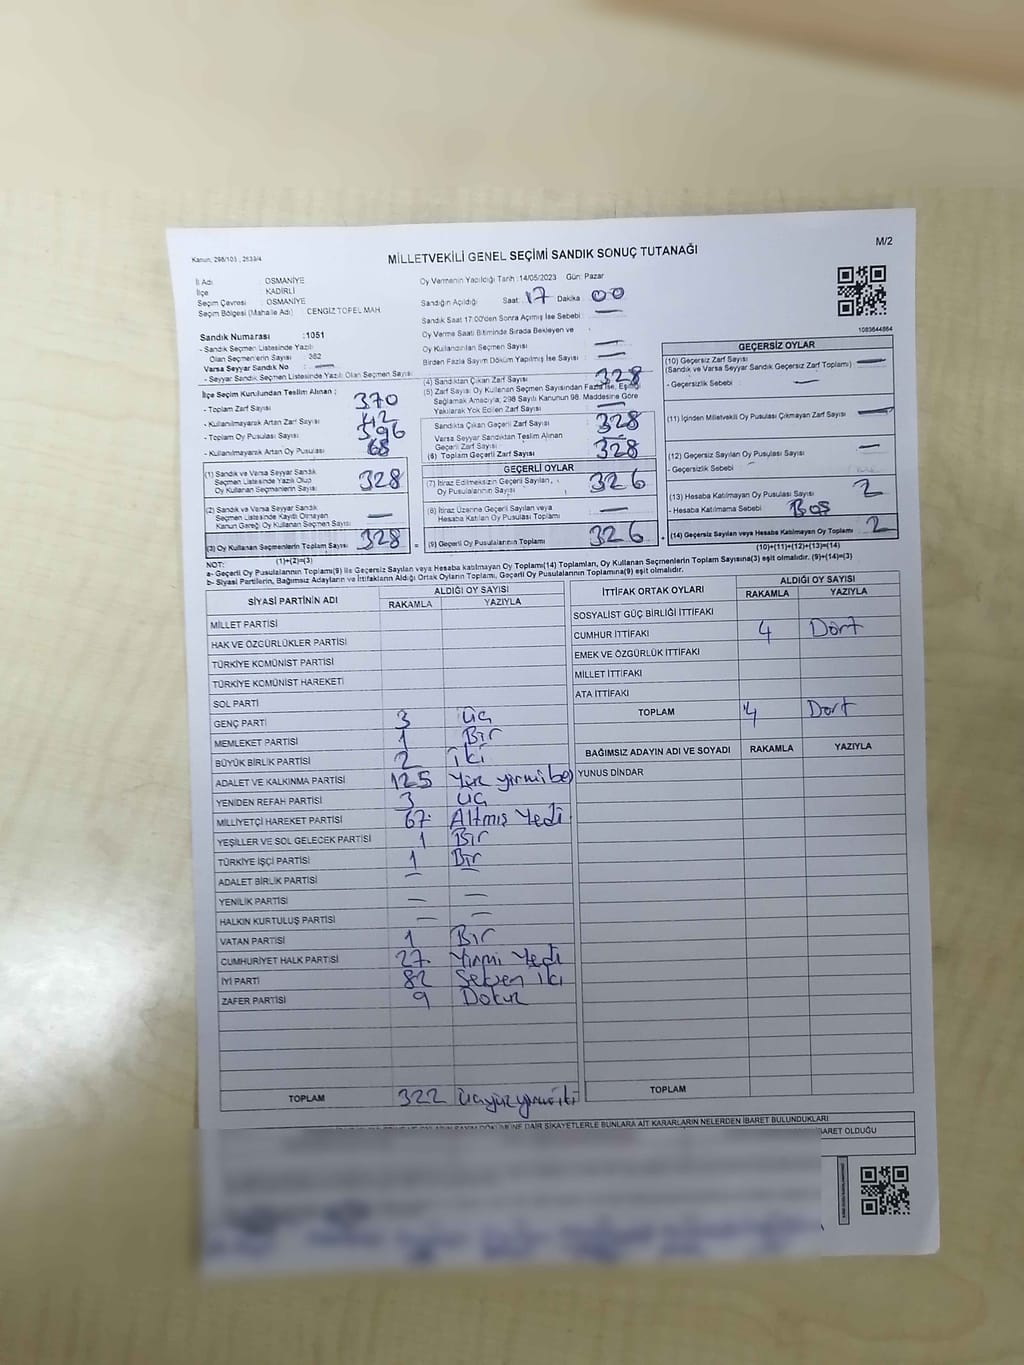 Kanun: 298/103 ; 2839/4
MİLLETVEKİLİ GENEL SEÇİMİ SANDIK SONUÇ TUTANAĞI
M/2
İl Adı : OSMANİYE
İlçe : KADİRLİ
Seçim Çevresi : OSMANİYE
Seçim Bölgesi (Mahalle Adı) CENGİZ TOPEL MAH.
Oy Vermenin Yapıldığı Tarih :14/05/2023 Gün: Pazar
Sandığın Açıldığı Saat: 17 Dakika : 00
Sandık Saat 17:00'den Sonra Açılmış İse Sebebi : —
Oy Verme Saati Bitiminde Sırada Bekleyen ve
Oy Kullandırılan Seçmen Sayısı —
Birden Fazla Sayım Döküm Yapılmış İse Sayısı : —
1083644864
Sandık Numarası :1051
- Sandık Seçmen Listesinde Yazılı
Olan Seçmenlerin Sayısı : 362
Varsa Seyyar Sandık No : —
- Seyyar Sandık Seçmen Listesinde Yazılı Olan Seçmen Sayısı
İlçe Seçim Kurulundan Teslim Alınan ;
- Toplam Zarf Sayısı 370
- Kullanılmayarak Artan Zarf Sayısı 42
- Toplam Oy Pusulası Sayısı 396
- Kullanılmayarak Artan Oy Pusulası 68
(1) Sandık ve Varsa Seyyar Sandık
Seçmen Listesinde Yazılı Olup
Oy Kullanan Seçmenlerin Sayısı 328
(2) Sandık ve Varsa Seyyar Sandık
Seçmen Listesinde Kaydı Olmayan
Kanun Gereği Oy Kullanan Seçmen Sayısı —
(3) Oy Kullanan Seçmenlerin Toplam Sayısı 328
(1)+(2)=(3)
(4) Sandıktan Çıkan Zarf Sayısı 328
(5) Zarf Sayısı Oy Kullanan Seçmen Sayısından Fazla İse, Eşitliği
Sağlamak Amacıyla, 298 Sayılı Kanunun 98. Maddesine Göre
Yakılarak Yok Edilen Zarf Sayısı —
Sandıkta Çıkan Geçerli Zarf Sayısı 328
Varsa Seyyar Sandıktan Teslim Alınan
Geçerli Zarf Sayısı —
(6) Toplam Geçerli Zarf Sayısı 328
GEÇERLİ OYLAR
(7) İtiraz Edilmeksizin Geçerli Sayılan,
Oy Pusulalarının Sayısı 326
(8) İtiraz Üzerine Geçerli Sayılan veya
Hesaba Katılan Oy Pusulası Toplamı —
(9) Geçerli Oy Pusulalarının Toplamı 326
GEÇERSİZ OYLAR
(10) Geçersiz Zarf Sayısı —
(Sandık ve Varsa Seyyar Sandık Geçersiz Zarf Toplamı)
- Geçersizlik Sebebi : —
(11) İçinden Milletvekili Oy Pusulası Çıkmayan Zarf Sayısı —
(12) Geçersiz Sayılan Oy Pusulası Sayısı —
- Geçersizlik Sebebi
(13) Hesaba Katılmayan Oy Pusulası Sayısı 2
- Hesaba Katılmama Sebebi : Boş
(14) Geçersiz Sayılan veya Hesaba Katılmayan Oy Toplamı 2
(10)+(11)+(12)+(13)=(14)
NOT:
a- Geçerli Oy Pusulalarının Toplamı(9) ile Geçersiz Sayılan veya Hesaba katılmayan Oy Toplamı(14) Toplamları, Oy Kullanan Seçmenlerin Toplam Sayısına(3) eşit olmalıdır. (9)+(14)=(3)
b- Siyasi Partilerin, Bağımsız Adayların ve İttifakların Aldığı Ortak Oyların Toplamı, Geçerli Oy Pusulalarının Toplamına(9) eşit olmalıdır.
SİYASİ PARTİNİN ADI ALDIĞI OY SAYISI
RAKAMLA YAZIYLA
MİLLET PARTİSİ
HAK VE ÖZGÜRLÜKLER PARTİSİ
TÜRKİYE KOMÜNİST PARTİSİ
TÜRKİYE KOMÜNİST HAREKETİ
SOL PARTİ
GENÇ PARTİ 3 üç
MEMLEKET PARTİSİ 1 Bir
BÜYÜK BİRLİK PARTİSİ 2 iki
ADALET VE KALKINMA PARTİSİ 125 Yüz yirmi beş
YENİDEN REFAH PARTİSİ 3 üç
MİLLİYETÇİ HAREKET PARTİSİ 67 Altmış Yedi
YEŞİLLER VE SOL GELECEK PARTİSİ 1 Bir
TÜRKİYE İŞÇİ PARTİSİ 1 Bir
ADALET BİRLİK PARTİSİ — —
YENİLİK PARTİSİ — —
HALKIN KURTULUŞ PARTİSİ — —
VATAN PARTİSİ 1 Bir
CUMHURİYET HALK PARTİSİ 27 Yirmi Yedi
İYİ PARTİ 82 Seksen iki
ZAFER PARTİSİ 9 Dokuz
TOPLAM 322 üçyüzyirmi iki
İTTİFAK ORTAK OYLARI ALDIĞI OY SAYISI
RAKAMLA YAZIYLA
SOSYALİST GÜÇ BİRLİĞİ İTTİFAKI
CUMHUR İTTİFAKI 4 Dört
EMEK VE ÖZGÜRLÜK İTTİFAKI
MİLLET İTTİFAKI
ATA İTTİFAKI
TOPLAM 4 Dört
BAĞIMSIZ ADAYIN ADI VE SOYADI RAKAMLA YAZIYLA
YUNUS DİNDAR
TOPLAM
OYLARIN SAYIM DÖKÜMÜNE DAİR ŞİKAYETLERLE BUNLARA AİT KARARLARIN NELERDEN İBARET BULUNDUKLARI
İBARET OLDUĞU